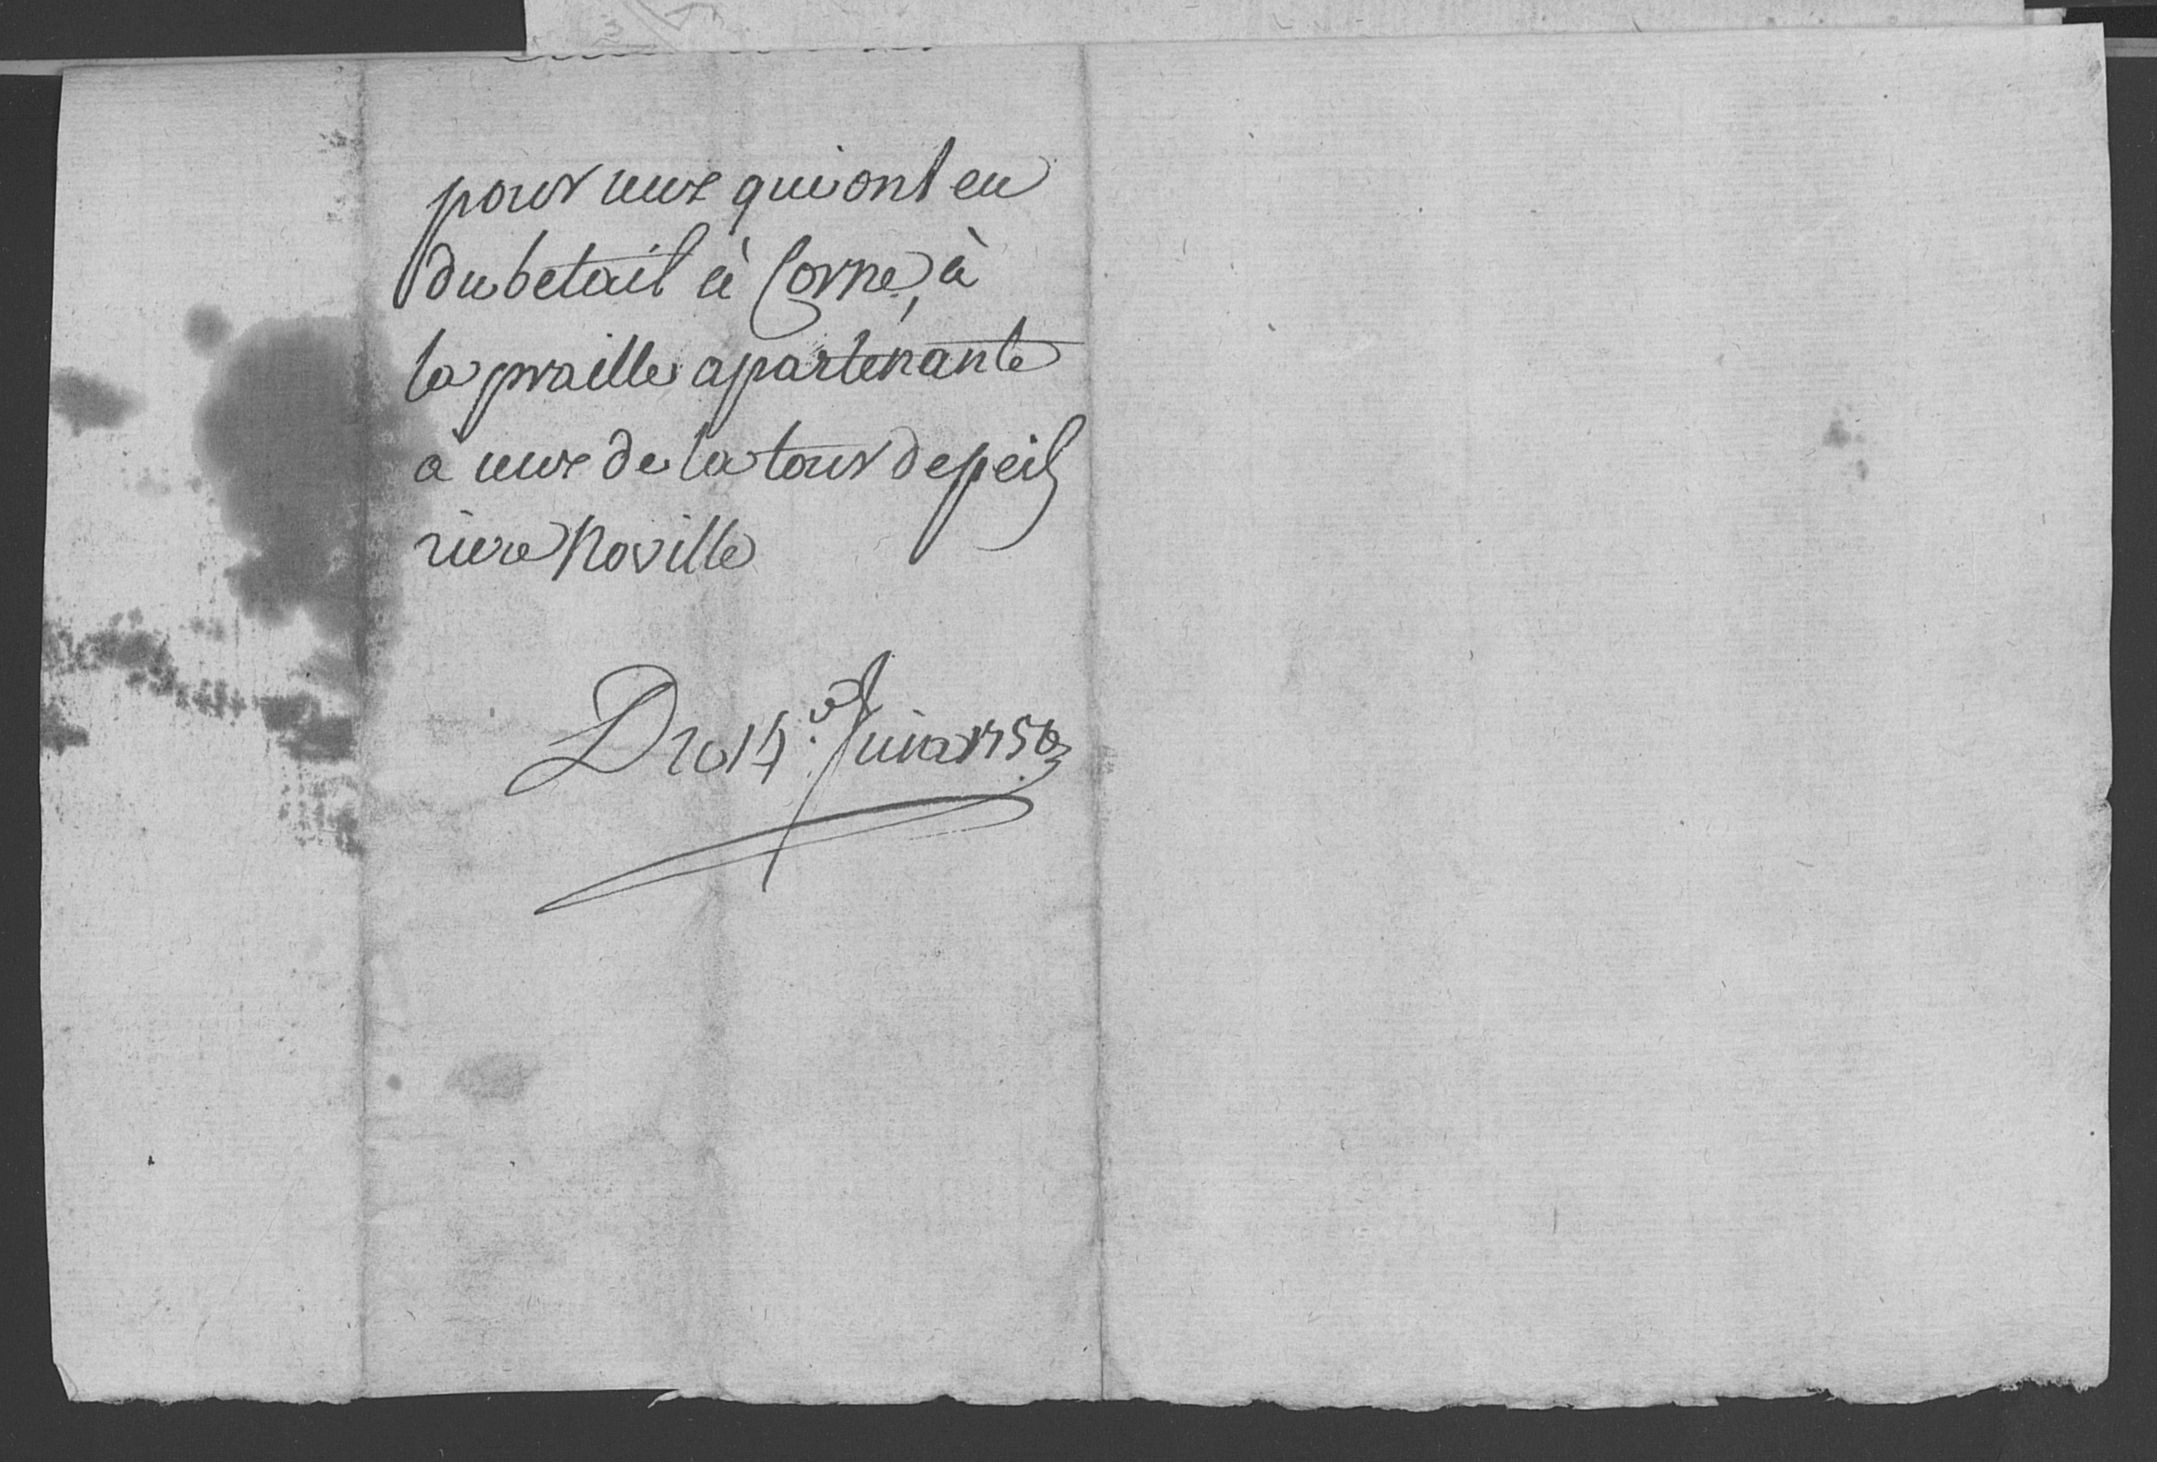 pour ceux qui ont eu
du betail à Corne, à
la praille apartenante
a ceux de la tour de peil
riere Noville
Du 14.e Juin 1756